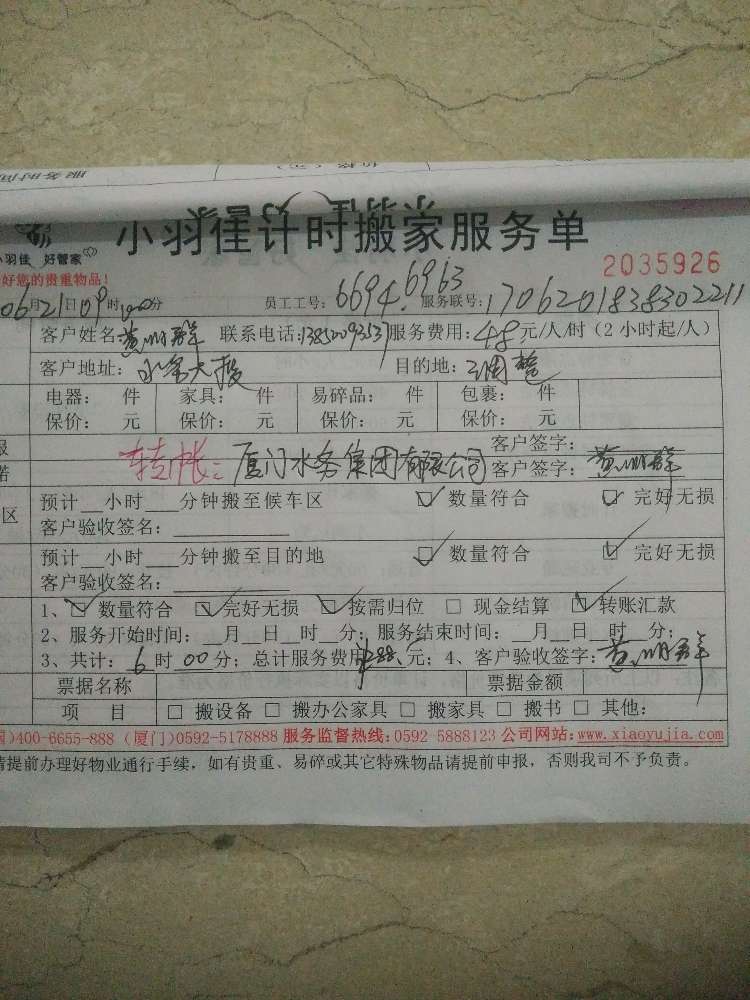 小羽佳计时搬家服务单
小羽佳 好管家
好您的贵重物品！
2035926
06月21日09时00分 员工工号：6694.6963 服务联号：1706201838302211
客户姓名： 联系电话：13850093537 服务费用：48元/人/时（2小时起/人）
客户地址：水务大楼 目的地：调整
电器： 件 家具： 件 易碎品： 件 包裹： 件
保价： 元 保价： 元 保价： 元 保价： 元
客户签字：
转帐：厦门水务集团有限公司 客户签字：
预计__小时___分钟搬至候车区 ☑数量符合 ☑完好无损
客户验收签名：
预计__小时___分钟搬至目的地 ☑数量符合 ☑完好无损
客户验收签名：
1、☑数量符合 ☑完好无损 ☑按需归位 □现金结算 ☑转账汇款
2、服务开始时间：__月__日__时__分；服务结束时间：__月__日__时__分；
3、共计：6时00分；总计服务费用 元；4、客户验收签字：
票据名称 票据金额
项 目 □搬设备 □搬办公家具 □搬家具 □搬书 □其他：
)400-6655-888 (厦门)0592-5178888 服务监督热线：0592-5888123 公司网站：www.xiaoyujia.com
请提前办理好物业通行手续，如有贵重、易碎或其它特殊物品请提前申报，否则我司不予负责。